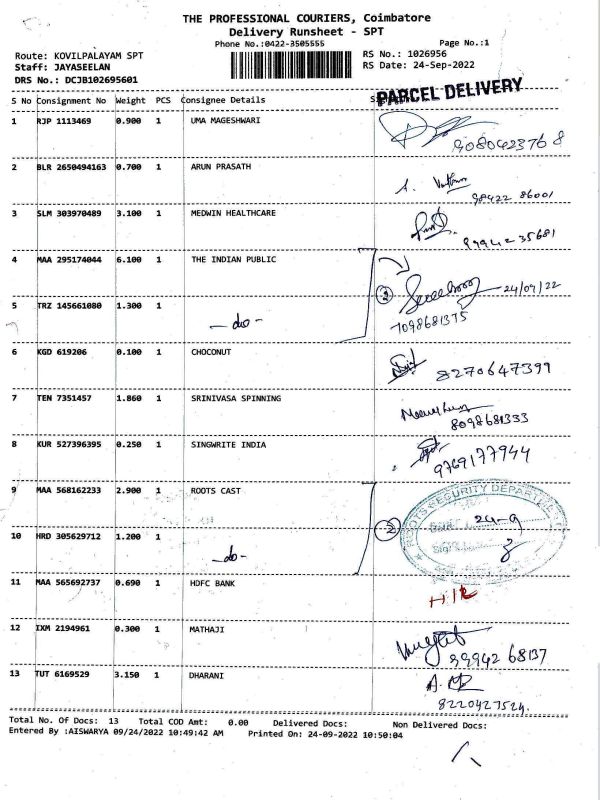 THE PROFESSIONAL COURIERS, Coimbatore
Delivery Runsheet - SPT
Phone No.:0422-3505555 Page No.:1
Route: KOVILPALAYAM SPT RS No.: 1026956
Staff: JAYASEELAN RS Date: 24-Sep-2022
DRS No.: DCJB102695601
PARCEL DELIVERY
S No Consignment No Weight PCS Consignee Details
1 RJP 1113469 0.900 1 UMA MAGESHWARI
9080423768
2 BLR 2650494163 0.700 1 ARUN PRASATH
A.
98422 86001
3 SLM 303970489 3.100 1 MEDWIN HEALTHCARE
99942 35681
4 MAA 295174044 6.100 1 THE INDIAN PUBLIC
② 24/09/22
5 TRZ 145661080 1.300 1 -do-
7098681375
6 KGD 619206 0.100 1 CHOCONUT
8270647399
7 TEN 7351457 1.860 1 SRINIVASA SPINNING
8098681333
8 KUR 527396395 0.250 1 SINGWRITE INDIA
9769177944
9 MAA 568162233 2.900 1 ROOTS CAST
ROOTS SECURITY DEPARTMENT
② 24-9
10 HRD 305629712 1.200 1 -do-
11 MAA 565692737 0.690 1 HDFC BANK
12 IXM 2194961 0.300 1 MATHAJI
99942 68137
13 TUT 6169529 3.150 1 DHARANI
8220427524
Total No. Of Docs: 13 Total COD Amt: 0.00 Delivered Docs: Non Delivered Docs:
Entered By :AISWARYA 09/24/2022 10:49:42 AM Printed On: 24-09-2022 10:50:04